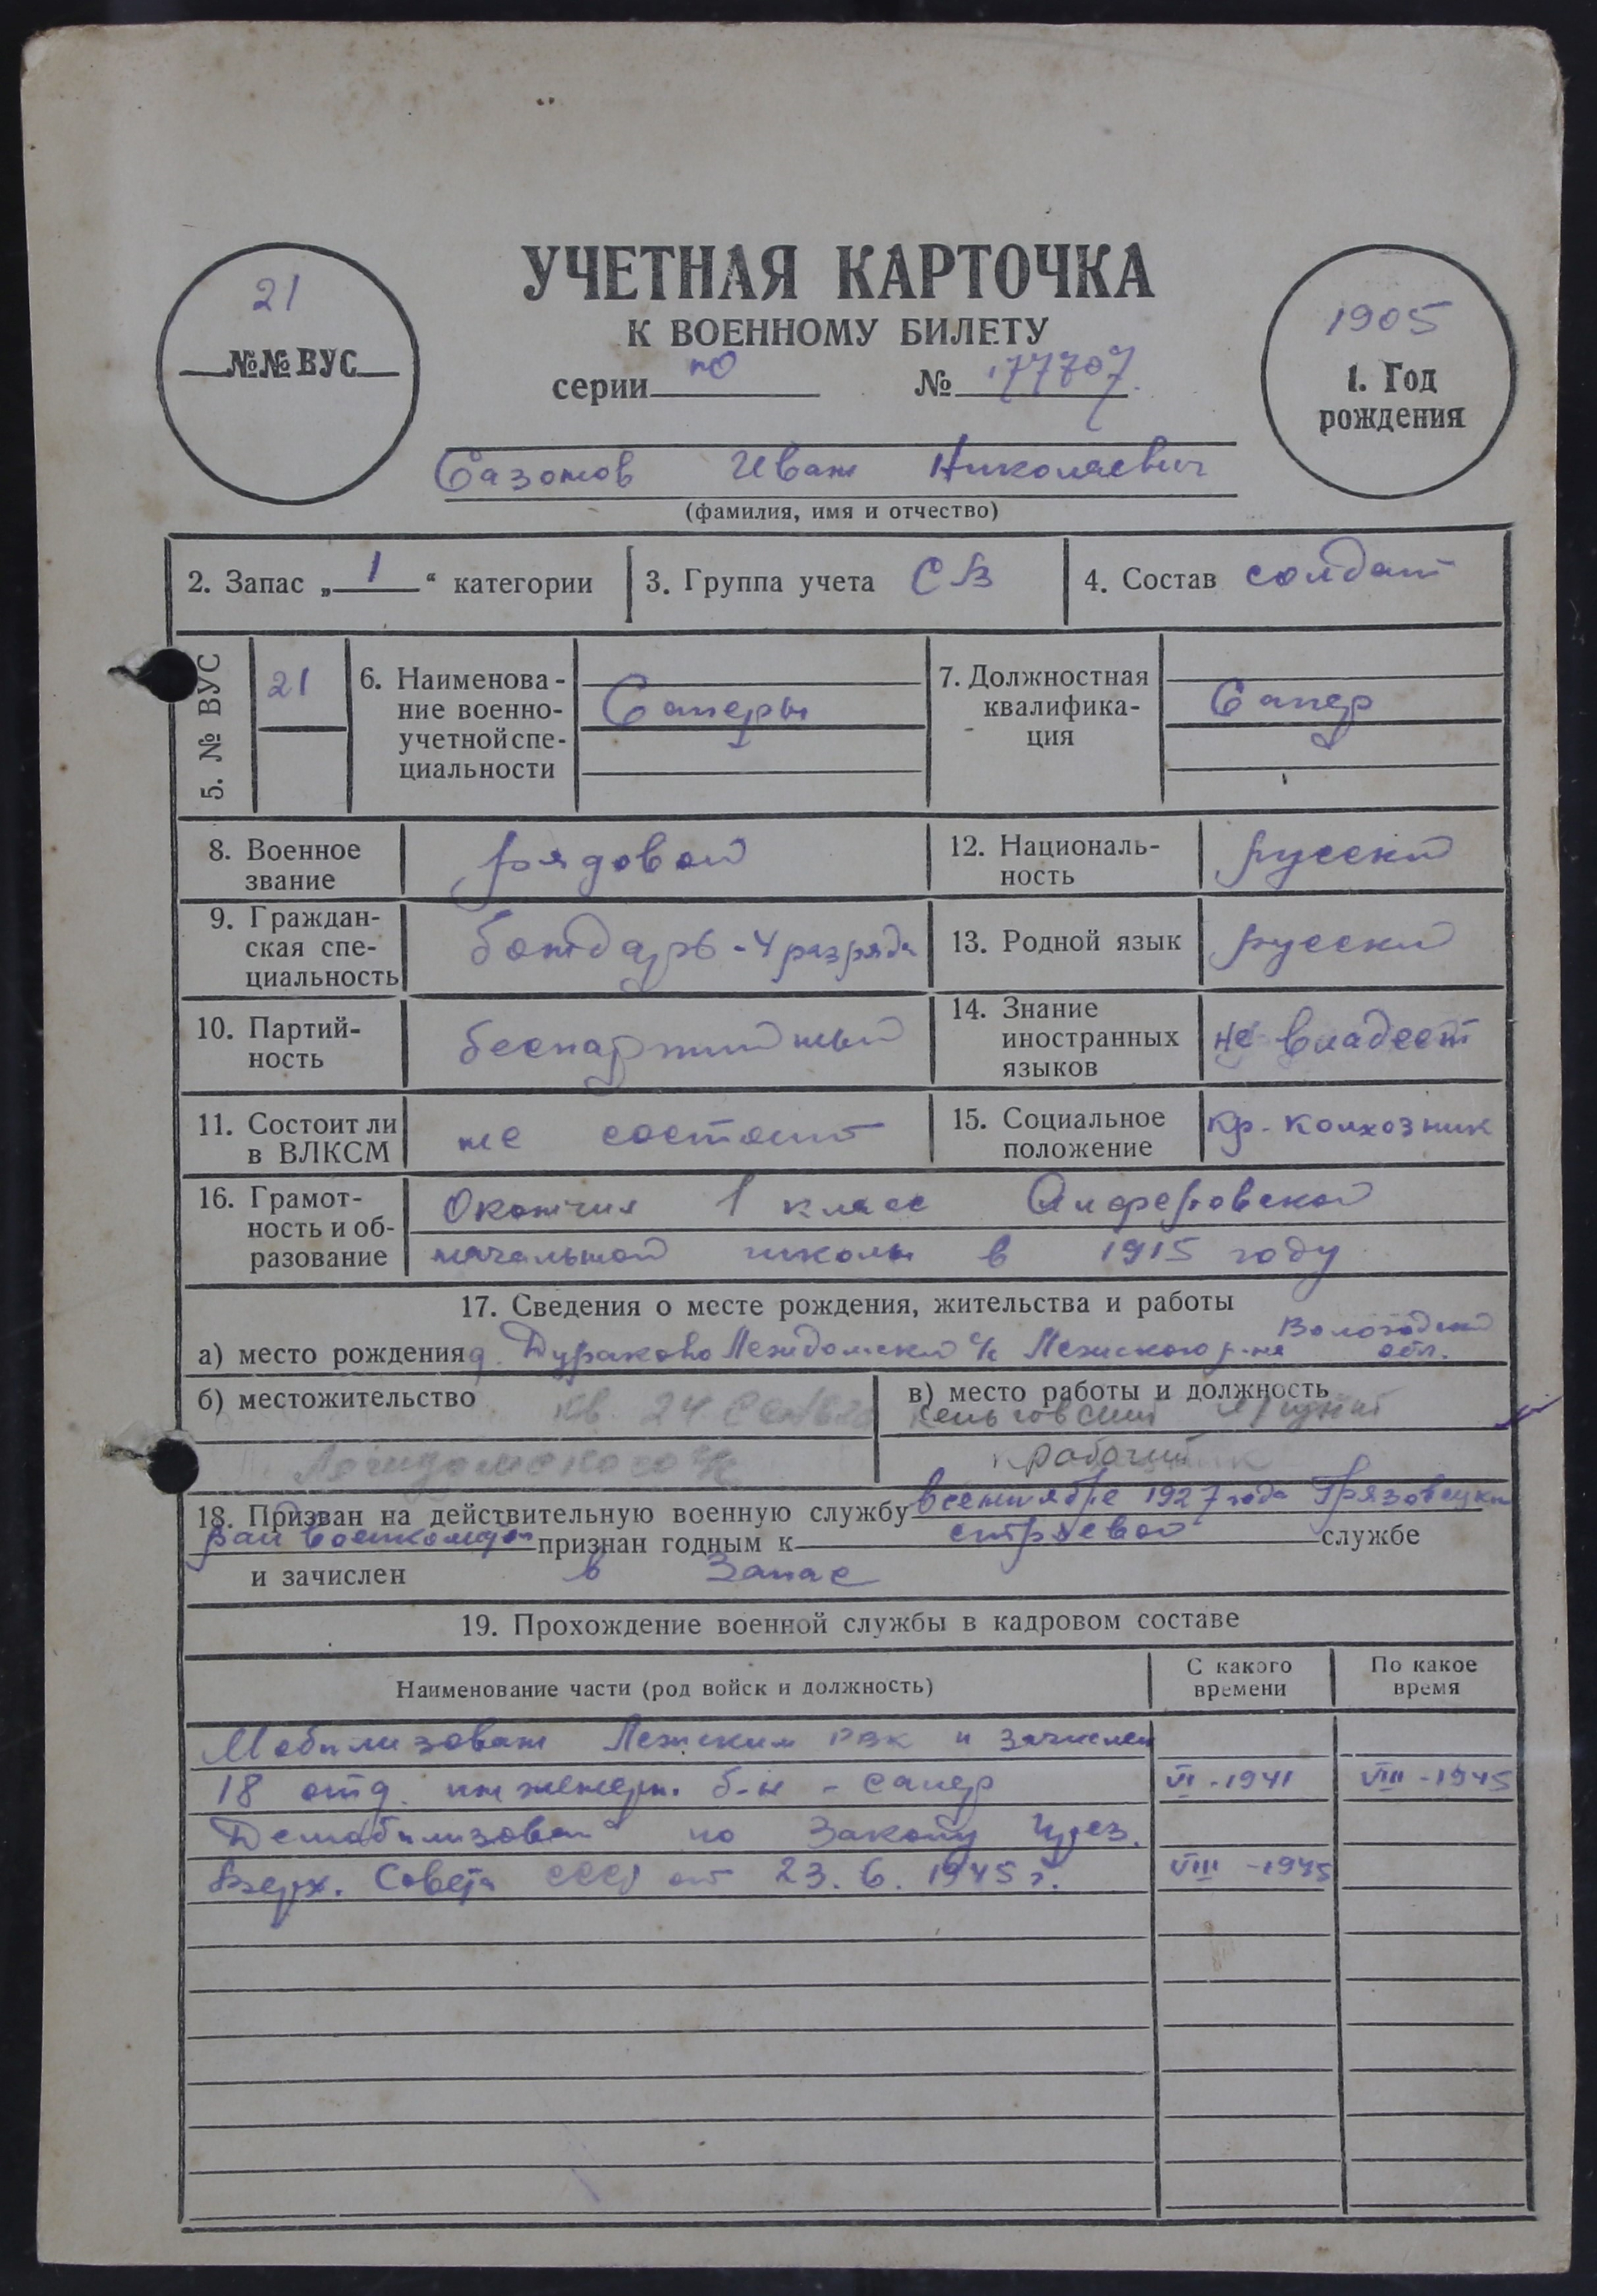 УЧЕТНАЯ КАРТОЧКА
К ВОЕННОМУ БИЛЕТУ
серии ПО № 177707
21
№№ ВУС
1905
1. Год
рождения
Сазонов Иван Николаевич
(фамилия, имя и отчество)
2. Запас „ 1 “ категории
3. Группа учета СВ
4. Состав солдат
5. № ВУС
21
6. Наименова-
ние военно-
учетной спе-
циальности
Саперы
7. Должностная
квалифика-
ция
Сапер
8. Военное
звание
рядовой
12. Националь-
ность
русский
9. Граждан-
ская спе-
циальность
бондарь - 4 разряда
13. Родной язык
русский
10. Партий-
ность
беспартийный
14. Знание
иностранных
языков
не владеет
11. Состоит ли
в ВЛКСМ
не состоит
15. Социальное
положение
кр. колхозник
16. Грамот-
ность и об-
разование
Окончил 1 класс Алферовской
начальной школы в 1915 году
17. Сведения о месте рождения, жительства и работы
а) место рождения д. Дураково Леждомский с/с Лежского р-на Вологодской
обл.
б) местожительство
кв. 24
Леждомского с/с
в) место работы и должность
рабочий
18. Призван на действительную военную службу в сентябре 1927 года Грязовецким
райвоенкоматом признан годным к строевой службе
и зачислен в запас
19. Прохождение военной службы в кадровом составе
Наименование части (род войск и должность)
С какого
времени
По какое
время
Мобилизован Лежским РВК и зачислен
18 отд. инженерн. б-н - сапер VI - 1941 VIII - 1945
Демобилизован по Закону През.
Верх. Совета СССР от 23. 6. 1945 г. VIII - 1945